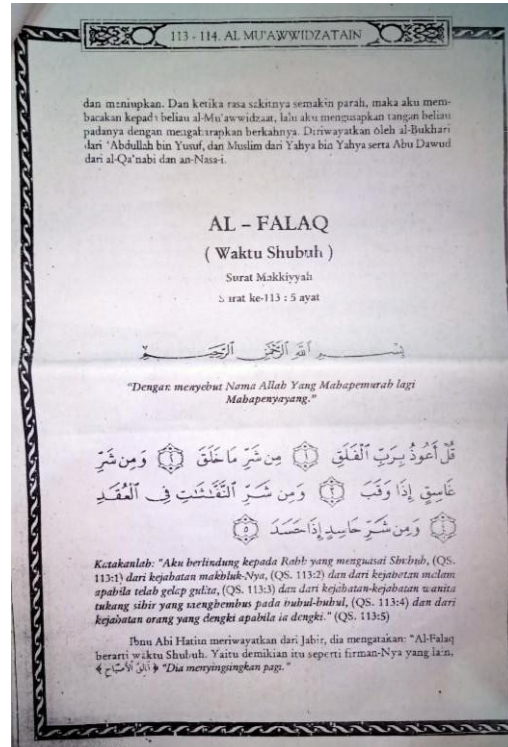 113 - 114. AL MU'AWWIDZATAIN
dan meniupkan. Dan ketika rasa sakitnya semakin parah, maka aku mem-
bacakan kepada beliau al-Mu'awwidzaat, lalu aku mengusapkan tangan beliau
padanya dengan mengharapkan berkahnya. Diriwayatkan oleh al-Bukhari
dari 'Abdullah bin Yusuf, dan Muslim dari Yahya bin Yahya serta Abu Dawud
dari al-Qa'nabi dan an-Nasa-i.
AL – FALAQ
( Waktu Shubuh )
Surat Makkiyyah
Surat ke-113 : 5 ayat
بِسْمِ اللَّهِ الرَّحْمَٰنِ الرَّحِيمِ
"Dengan menyebut Nama Allah Yang Mahapemurah lagi
Mahapenyayang."
قُلْ أَعُوذُ بِرَبِّ الْفَلَقِ ﴿١﴾ مِن شَرِّ مَا خَلَقَ ﴿٢﴾ وَمِن شَرِّ
غَاسِقٍ إِذَا وَقَبَ ﴿٣﴾ وَمِن شَرِّ النَّفَّاثَاتِ فِي الْعُقَدِ
﴿٤﴾ وَمِن شَرِّ حَاسِدٍ إِذَا حَسَدَ ﴿٥﴾
Katakanlah: "Aku berlindung kepada Rabb yang menguasai Shubuh, (QS.
113:1) dari kejahatan makhluk-Nya, (QS. 113:2) dan dari kejahatan malam
apabila telah gelap gulita, (QS. 113:3) dan dari kejahatan-kejahatan wanita
tukang sihir yang menghembus pada buhul-buhul, (QS. 113:4) dan dari
kejahatan orang yang dengki apabila ia dengki." (QS. 113:5)
Ibnu Abi Hatim meriwayatkan dari Jabir, dia mengatakan: "Al-Falaq
berarti waktu Shubuh. Yaitu demikian itu seperti firman-Nya yang lain,
﴿ فَالِقُ الْأَصْبَاحِ ﴾ "Dia menyingsingkan pagi."